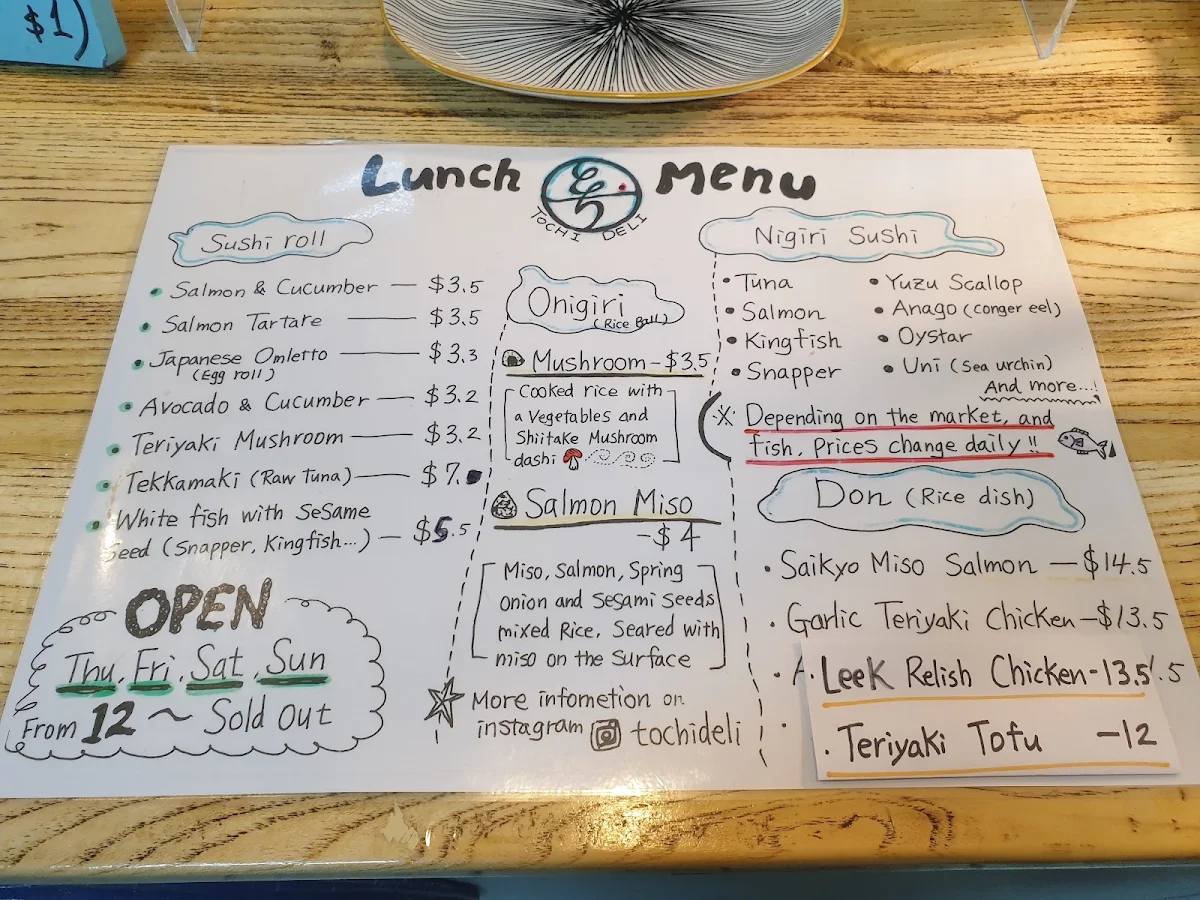 $1)
Lunch Menu
TOCHI DELI
Sushi roll
Salmon & Cucumber — $3.5
Salmon Tartare — $3.5
Japanese Omletto — $3.3
(Egg roll)
Avocado & Cucumber — $3.2
Teriyaki Mushroom — $3.2
Tekkamaki (Raw Tuna) — $7.
White fish with Sesame
Seed (Snapper, Kingfish...) — $5.5
OPEN
Thu, Fri, Sat, Sun
From 12 ~ Sold Out
Onigiri
(Rice Ball)
Mushroom - $3.5
Cooked rice with
a Vegetables and
Shiitake Mushroom
dashi
Salmon Miso
- $4
Miso, Salmon, Spring
Onion and Sesami Seeds
mixed Rice. Seared with
miso on the Surface
More infometion on
instagram tochideli
Nigiri Sushi
• Tuna
• Salmon
• Kingfish
• Snapper
• Yuzu Scallop
• Anago (conger eel)
• Oystar
• Uni (Sea urchin)
And more...!
※ Depending on the market, and
fish, Prices change daily !!
Don (Rice dish)
• Saikyo Miso Salmon — $14.5
• Garlic Teriyaki Chicken - $13.5
Leek Relish Chicken - 13.5
• Teriyaki Tofu - 12